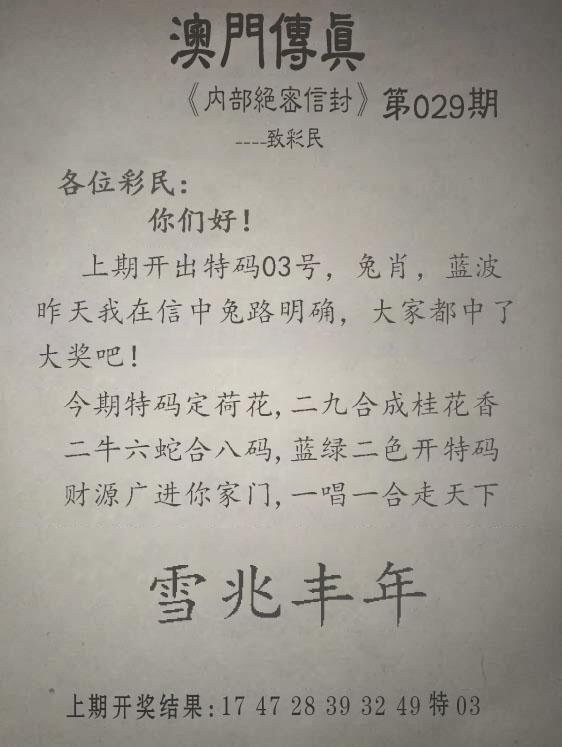 澳門傳眞
《内部絕密信封》第029期
----致彩民
各位彩民：
你们好！
上期开出特码03号，兔肖，蓝波
昨天我在信中兔路明确，大家都中了
大奖吧！
今期特码定荷花，二九合成桂花香
二牛六蛇合八码，蓝绿二色开特码
财源广进你家门，一唱一合走天下
雪兆丰年
上期开奖结果：17 47 28 39 32 49 特 03